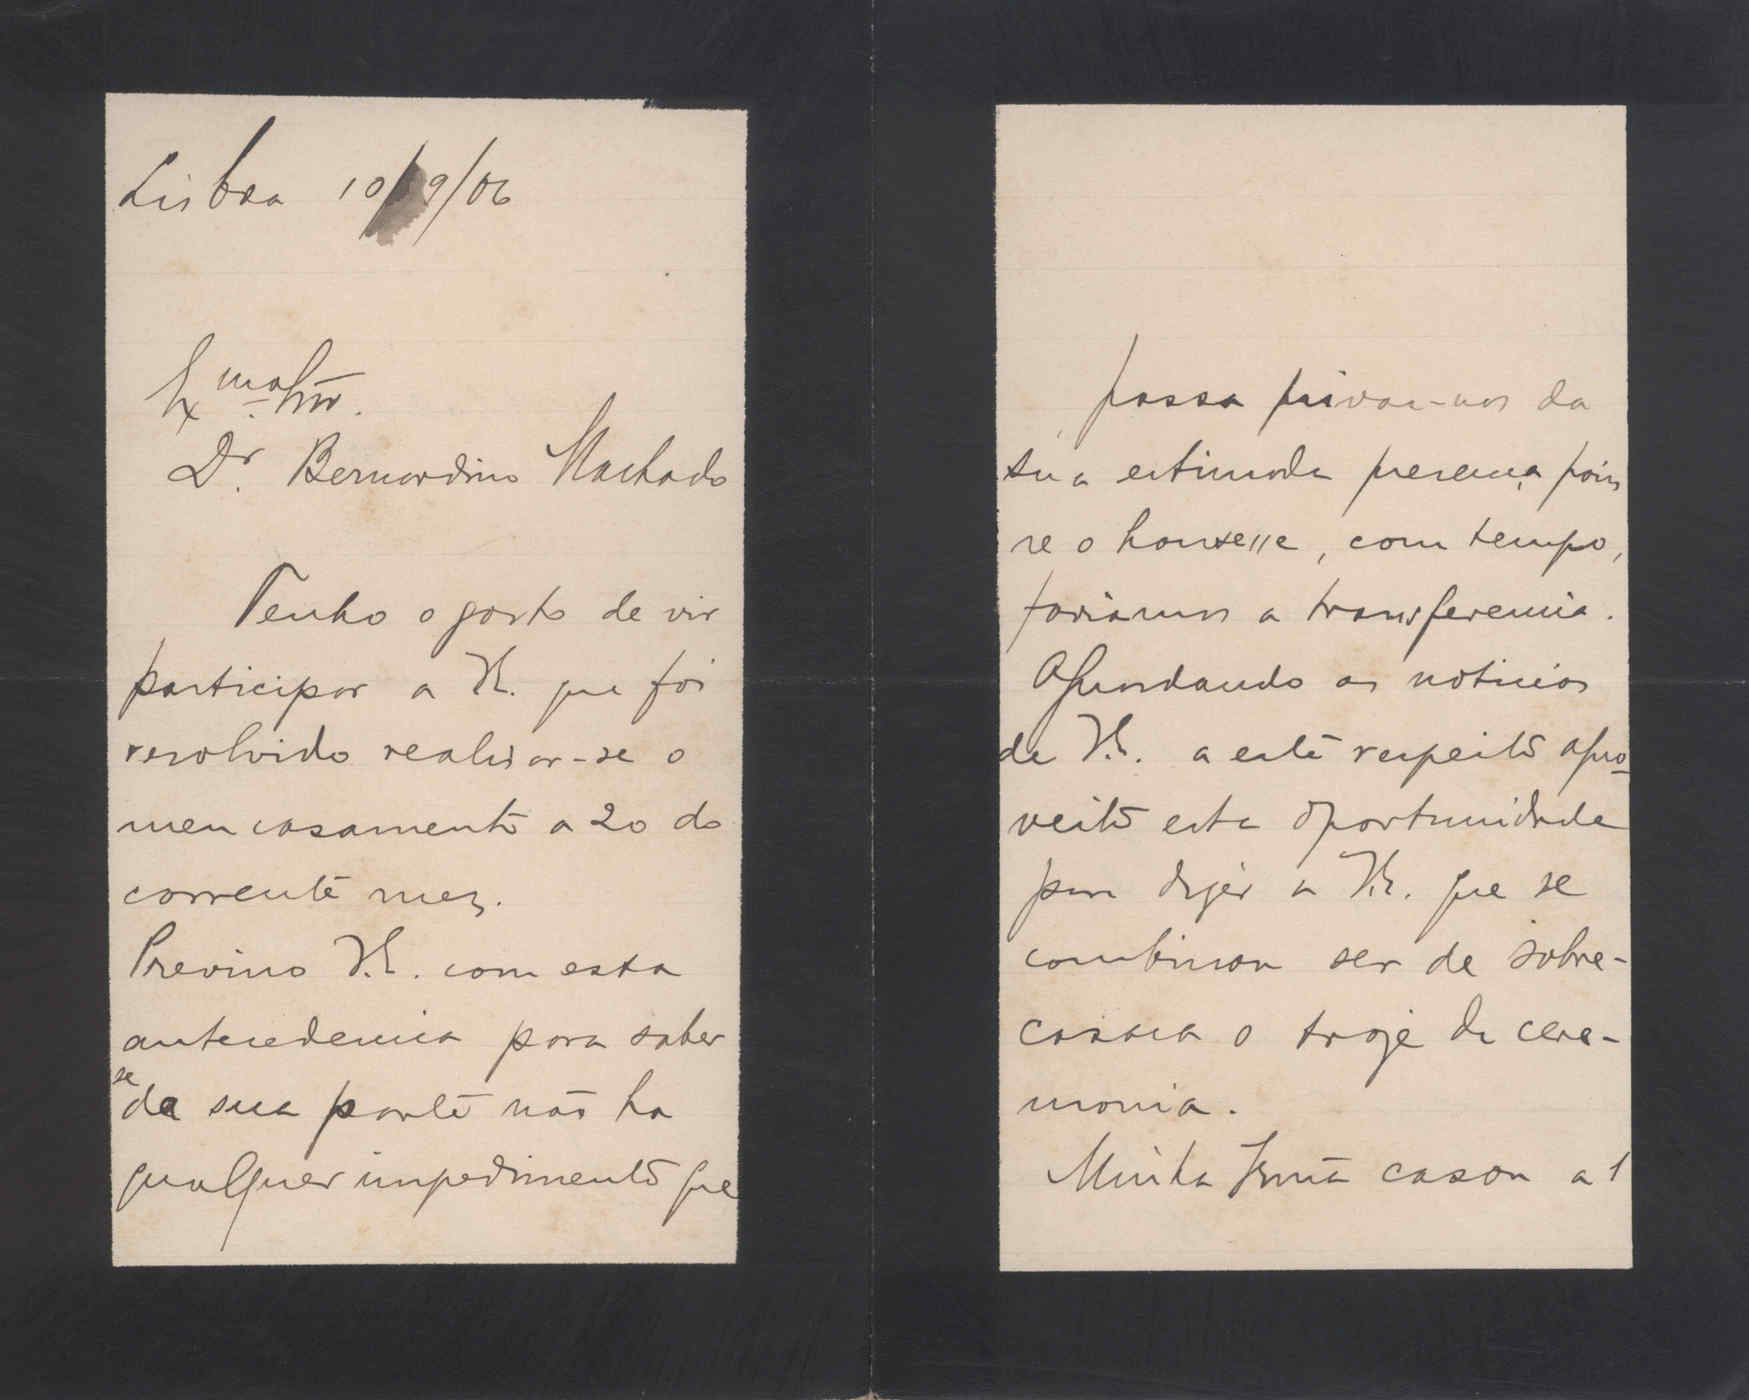 Lisboa 10/9/06
Exmo. Snr.
Dr. Bernardino Machado
Tenho o gosto de vir
participar a V.E. que foi
resolvido realisar-se o
meu casamento a 20 do
corrente mez.
Previno V.E. com esta
antecedencia para saber
se
da sua parte não ha
qualquer impedimento que
possa privar-nos da
sua estimada presença pois
se o houvesse, com tempo,
fariamos a transferencia.
Aguardando as noticias
de V.E. a este respeito apro-
veito esta opportunidade
para dizer a V.E. que se
combinou ser de sobre-
casaca o traje de cere-
monia.
Minha Irmã casou a 1